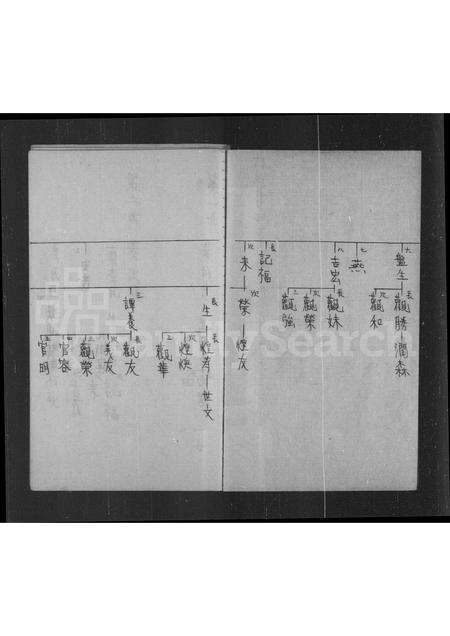 六
盤生
長
觀勝
潤森
次
觀和
七
燕
八
吉忠
長
觀妹
次
觀榮
三
觀強
長
記福
次
来
次
榮
煌友
長
生
長
世文
次
煌煥
三
觀華
三
譚養
長
觀友
次
美友
三
觀榮
四
官容
五
官明
FamilySearch